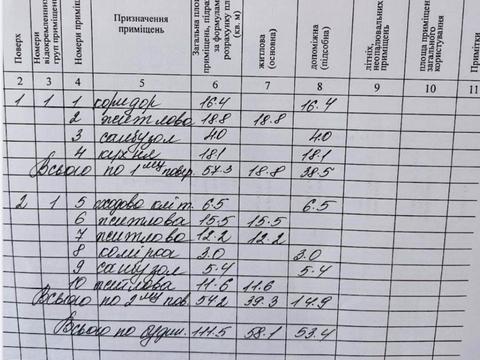 Поверх
Номери відокремлених груп приміщень
Номери приміщень
Призначення приміщень
Загальна площа приміщень, підра
за формулам
розрахунку пл
(кв. м)
житлова (основна)
допоміжна (підсобна)
літніх, неопалювальних приміщень
площа приміщень загального користування
Примітки
2 3 4 5 6 7 8 9 10 11
1 1 1 коридор 16.4 16.4
2 житлова 18.8 18.8
3 санвузол 4.0 4.0
4 кухня 18.1 18.1
Всього по 1 му пов. 57.3 18.8 38.5
2 1 5 сходова кліт. 6.5 6.5
6 житлова 15.5 15.5
7 житлова 12.2 12.2
8 комірка 3.0 3.0
9 санвузол 5.4 5.4
10 житлова 11.6 11.6
Всього по 2 му пов. 54.2 39.3 14.9
Всього по будин. 111.5 58.1 53.4